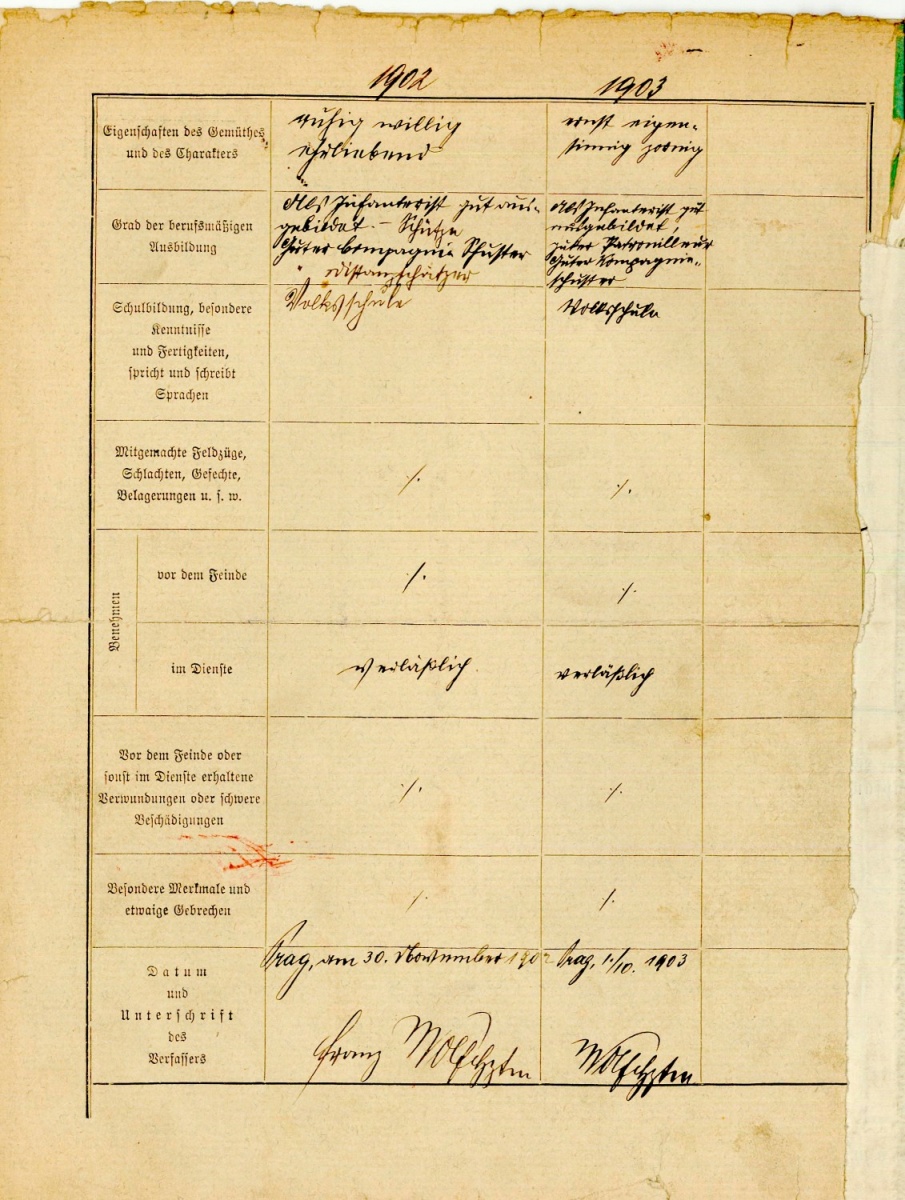 1902
1903
Eigenschaften des Gemüthes
und des Charakters
ruhig willig
ehrliebend
ernst eigen-
sinnig zornig
Grad der berufsmäßigen
Ausbildung
Als Infanterist gut aus-
gebildet. – Schütze
Guter Compagnie Schuster
" Distanzschätzer
Als Infanterist gut
ausgebildet,
guter Patrouilleur
Guter Kompagnie-
schuster
Schulbildung, besondere
Kenntnisse
und Fertigkeiten,
spricht und schreibt
Sprachen
Volksschule
Volksschule
Mitgemachte Feldzüge,
Schlachten, Gefechte,
Belagerungen u. s. w.
./.
./.
Benehmen
vor dem Feinde
./.
./.
im Dienste
verläßlich
verläßlich
Vor dem Feinde oder
sonst im Dienste erhaltene
Verwundungen oder schwere
Beschädigungen
./.
./.
Besondere Merkmale und
etwaige Gebrechen
./.
./.
Datum
und
Unterschrift
des
Verfassers
Prag, am 30. November 1902
Prag, 1./10. 1903
Franz